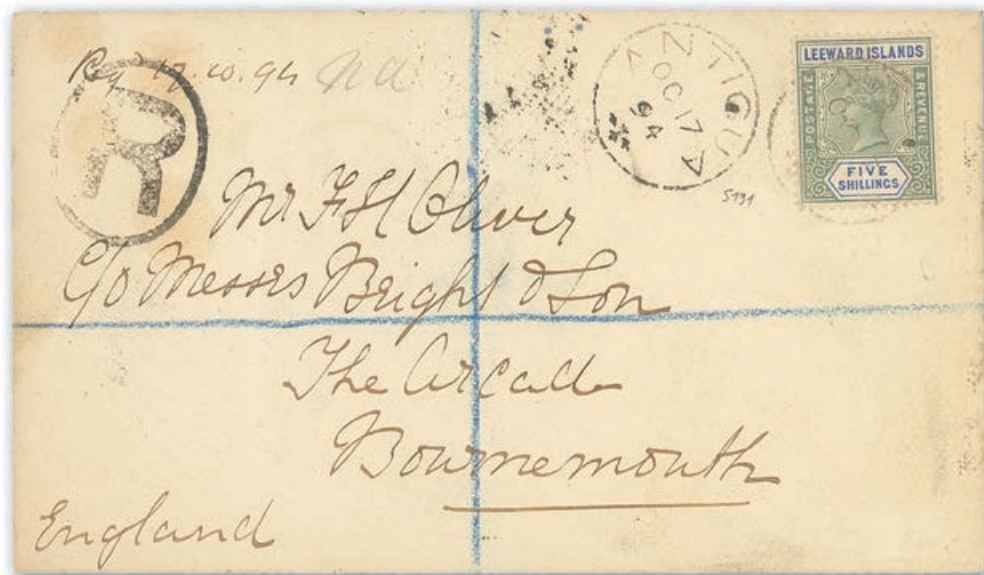 Reg 17.10.94
R
ANTIGUA
OC 17
94
LEEWARD ISLANDS
POSTAGE
& REVENUE
FIVE
SHILLINGS
5791
Mr F H Oliver
c/o Messrs Bright & Son
The Arcade
Bournemouth
England